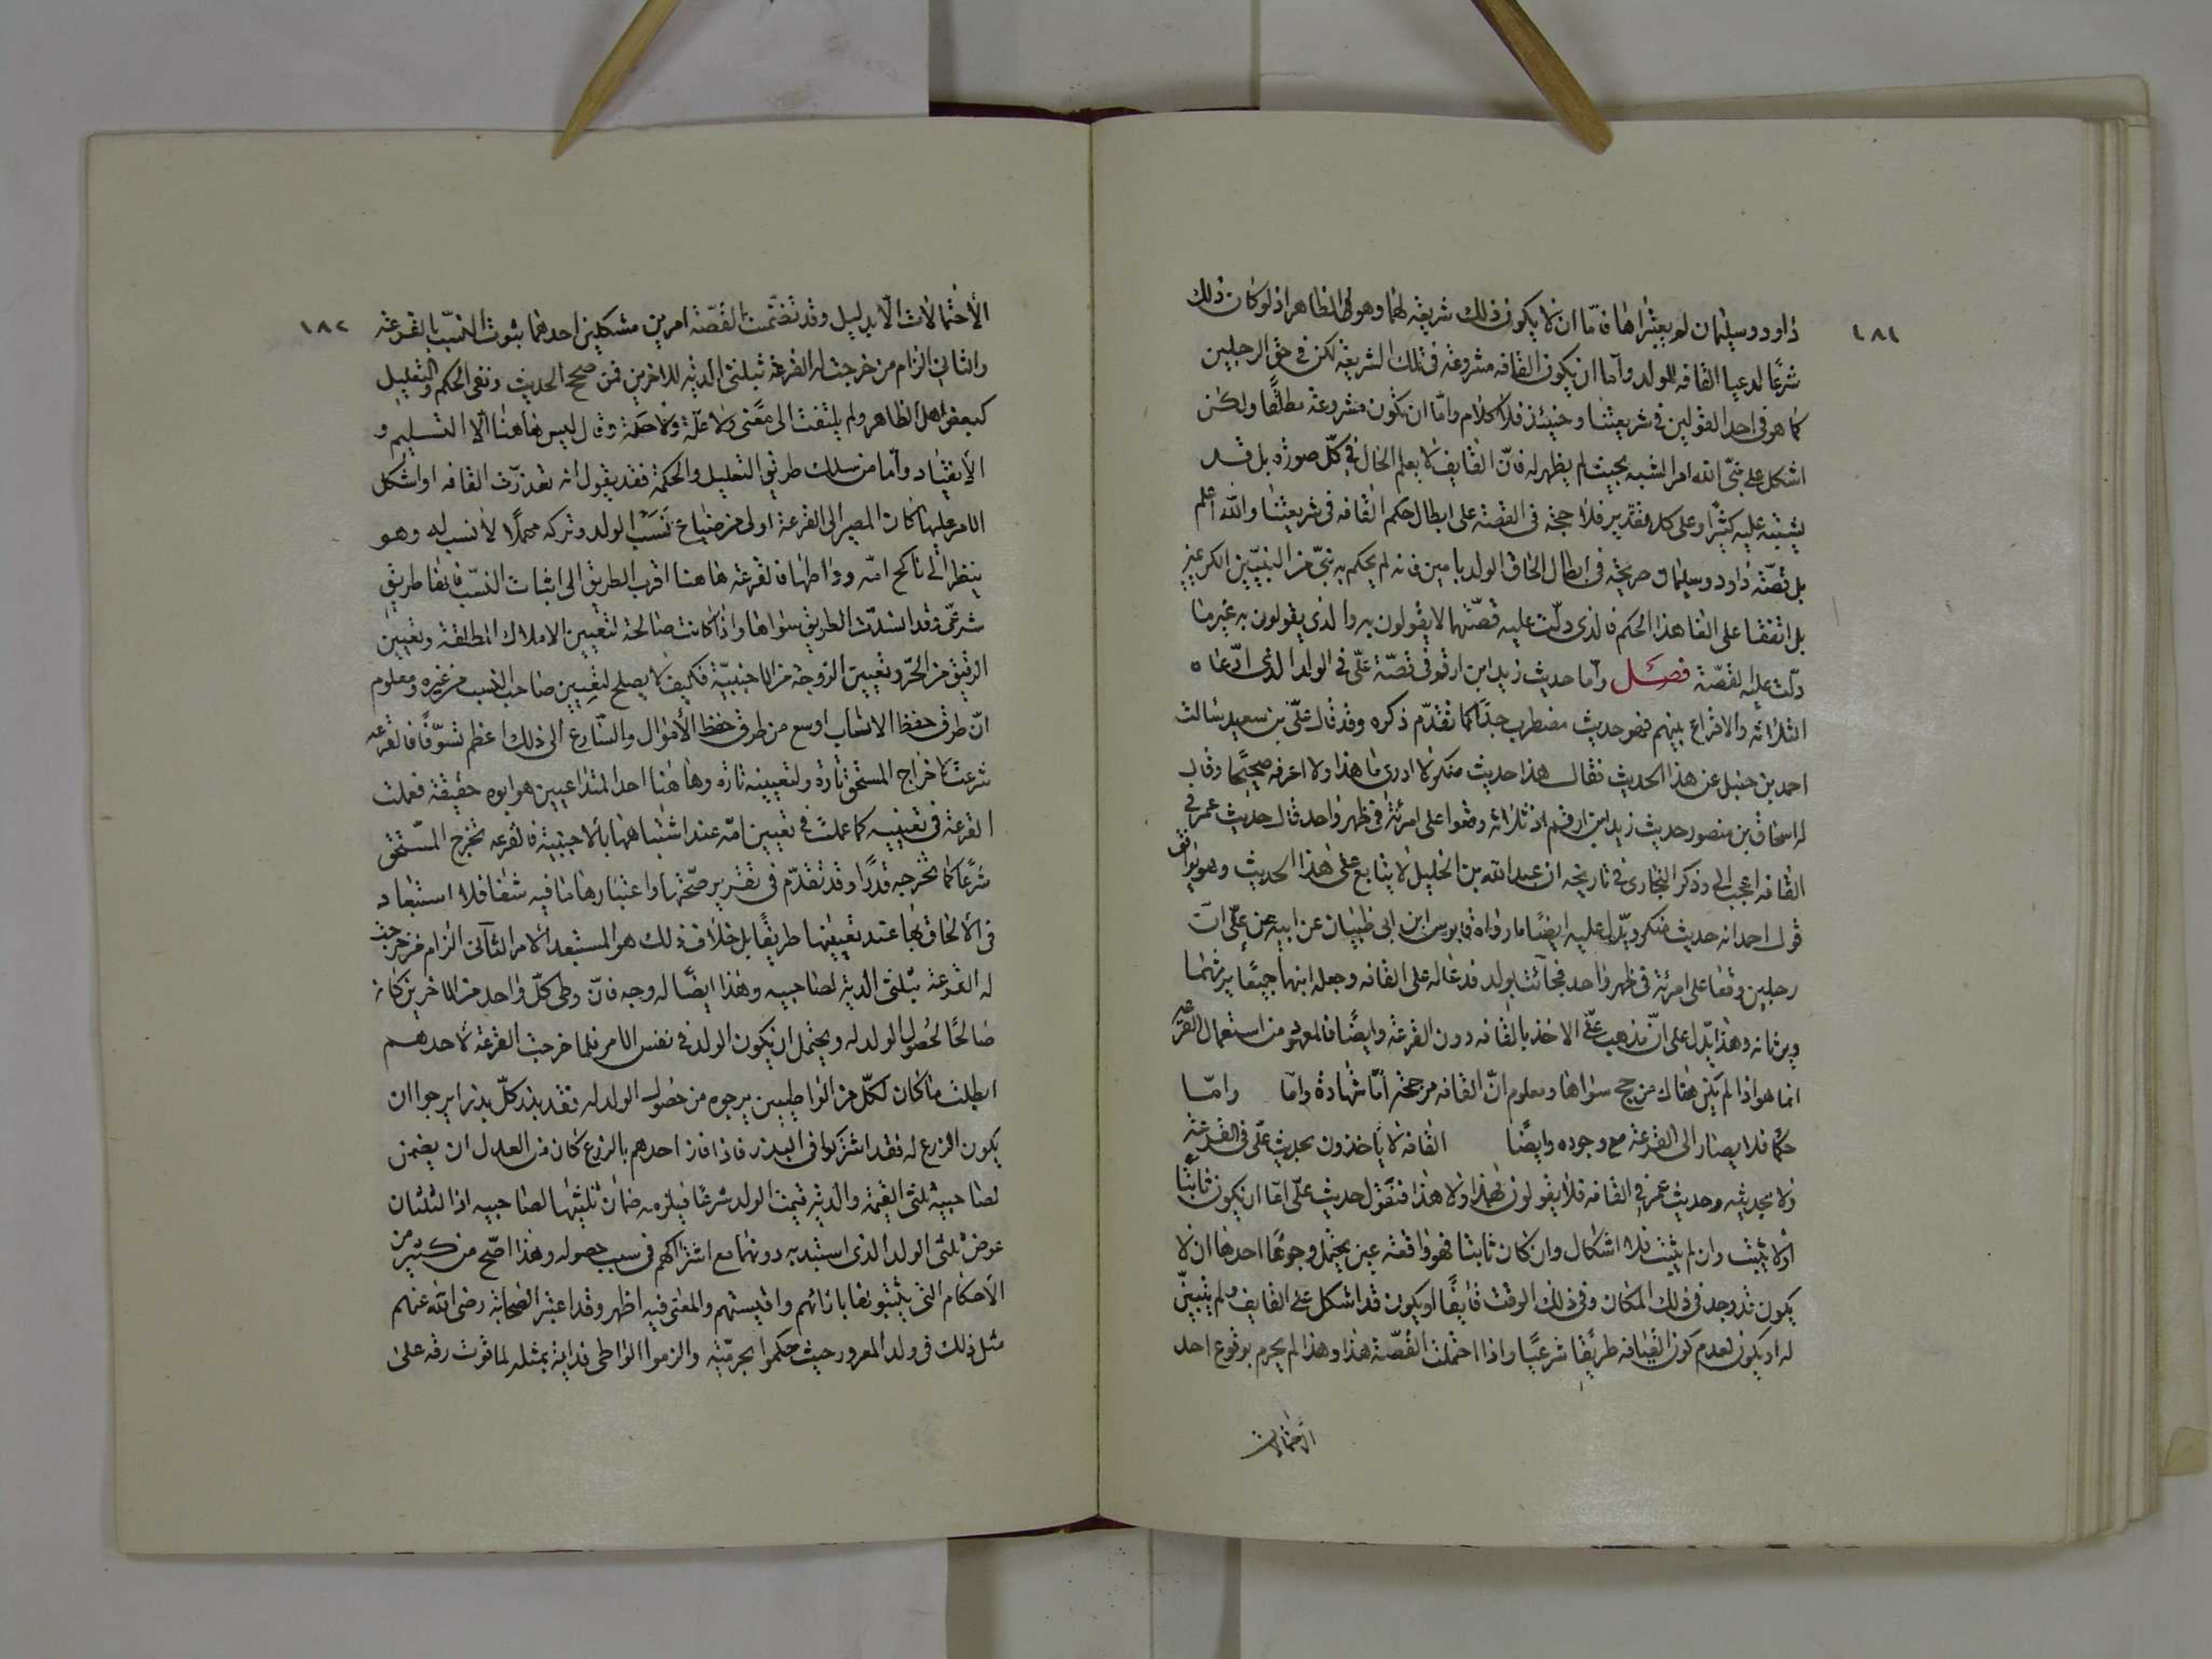 ١٨١
داود وسليمان لم يعتبراها فامّا ان لا يكون ذلك شريعة لهما وهو الظاهر اذ لو كان ذلك
شرعًا لدعيا القافه للولد وامّا ان يكون القافه مشروعة فى تلك الشريعة لكن فى حق الرجلين
كما هو فى احد القولين فى شريعتنا وحينئذ فلا كلام وامّا ان تكون مشروعة مطلقًا ولكن
اشكل على نبىّ الله امر الشبه بحيث لم يظهر له فانّ القايف لا يعلم الحال فى كلّ صورة بل قد
يشتبه عليه كثيرًا وعلى كل تقدير فلا حجة فى القصّة على ابطال حكم القافه فى شريعتنا والله اعلم
بل قصّة داود وسليمان صريحة فى ابطال الحاق الولد بامين فانه لم يحكم به نبىّ من النبيّين الكريمين
بل اتفقا على الغا هذا الحكم فالذى دلّت عليه قصّتهما لا يقولون به والذى يقولون به غير ما
دلّت عليه القصّة فصل وامّا حديث زيد ابن ارقم فى قصّة علىّ فى الولد الذى ادّعاه
الثلاثه والاقراع بينهم فهو حديث مضطرب جدًّا كما تقدّم ذكره وقد قال علىّ بن سعيد سالت
احمد بن حنبل عن هذا الحديث فقال هذا حديث منكر لا ادرى ما هذا ولا اعرفه صحيحًا وقال
له اسحاق بن منصور حديث زيد ابن ارقم ان ثلاثه وقعوا على امرئة فى ظهر واحد قال حديث عمر فى
القافه اعجب الىّ وذكر البخارى فى تاريخه ان عبد الله بن الخليل لا يتابع على هذا الحديث وهو يوافق
قول احمد انه حديث منكر ويدّل عليه ايضًا ما رواه قابوس ابن ابى ظبيان عن ابيه عن علىّ انّ
رجلين وقعا على امرئة فى ظهر واحد فجائت بولد فدعا له على القافه وجعله ابنهما جميعًا يرثهما
ويرثانه وهذا يدّل على انّ مذهب علىّ الاخذ بالقافه دون القرعة وايضًا فالمعهود من استعمال القرعة
انما هو اذا لم يكن هناك مرجح سواها ومعلوم انّ القافه مرجحة امّا شهادة وامّا وامّا
حكما فلا يصار الى القرعة مع وجوده وايضًا القافه لا ياخذون بحديث علىّ فى القرعة
ولا بحديثه وحديث عمر فى القافه فلا يقولون بهذا ولا هذا فنقول حديث علىّ امّا ان يكون ثابتًا
او لا يثبت وان لم يثبت فلا اشكال وان كان ثابتا فهو واقعة عين يحتمل وجوهًا احدها ان لا
يكون قد وجد فى ذلك المكان وفى ذلك الوقت قايفًا او يكون قد اشكل على القايف ولم يتبيّن
له او يكون لعدم كون القيافه طريقًا شرعيًا واذا احتملت القصّة هذا وهذا لم يجزم بوقوع احد
الاحتمالات
١٨٢
الأحتمالات الّا بدليل وقد تضمّنت القصّة امرين مشكلين احدهما ثبوت النسب بالقرعة
والثانى الزام من خرجت له القرعة ثبلثى الدية للاخرين فمن صحح الحديث ونفى الحكم والتعليل
كبعض اهل الظاهر ولم يلتفت الى معنى ولا علّة ولا حكمة وقال ليس هاهنا الّا التسليم و
الأنقياد وامّا من سلك طريق التعليل والحكمة فقد يقول انه تعذرّت القافه او اشكل
الامر عليها كان المصير الى القرعة اولى من ضياع نَسَب الولد وتركه مهملًا لا نسب له وهو
ينظر الى ناكح امّه وواطئها فالقرعة هاهنا اقرب الطريق الى اثبات النسب فانها طريق
شرعىّ وقد انسدّت الطريق سواها واذا كانت صالحة لتعيين الاملاك المطلقة وتعيين
الرقيق من الحرّ وتعيين الزوجة من الاجنبيّة فكيف لا يصلح لتعيين صاحب النسب من غيره ومعلوم
انّ طرق حفظ الانساب اوسع من طرق حفظ الأموال والشارع الى ذلك اعظم تشوّفًا فالقرعه
شرعت لاخراج المستحق تارة ولتعيينه تارة وهاهنا احد المتداعيين هو ابوه حقيقة فعملت
القرعة فى تعيينه كما عملت فى تعيين امّه عند اشتباهها بالاجنبية فالقرعه تخرج المستحق
شرعًا كما تخرجه قدرًا وقد تقدّم فى تقرير صحّتها واعتبارها ما فيه شفا فلا استبعاد
فى الألحاق بها عند تعيينها طريقًا بل خلاف ذلك هو المستبعد الامر الثّانى الزام من خرجت
له القرعة بثلثى الدية لصاحبيه وهذا ايضًا له وجه فانّ وطى كلّ واحد من الاخرين كان
صالحًا لحصول الولد له ويحتمل ان يكون الولد فى نفس الامر فلما خرجت القرعة لاحدهم
ابطلت ما كان لكلّ من الواطيين يرجوه من حصول الولد له فقد بذر كلّ بذرا يرجوا ان
يكون الزرع له فقد اشتركوا فى البذر فاذا فاز احدهم بالزرع كان من العدل ان يضمن
لصاحبيه ثلثى القيمة والدية قيمة الولد شرعًا فيلزمه ضمان ثلثيها لصاحبيه اذا الثلثان
عوض ثلثى الولد الذى استبد به دونهما مع اشتراكهم فى سبب حصوله وهذا اصّح من كثير من
الأحكام التى يثبتونها بارائهم واقيستهم والمعنى فيه اظهر وقد اعتبر الصحابة رضى الله عنهم
مثل ذلك فى ولد المغرور حيث حكموا بحرّيته والزموا الواطى فداية بمثله لما فوت رقه على